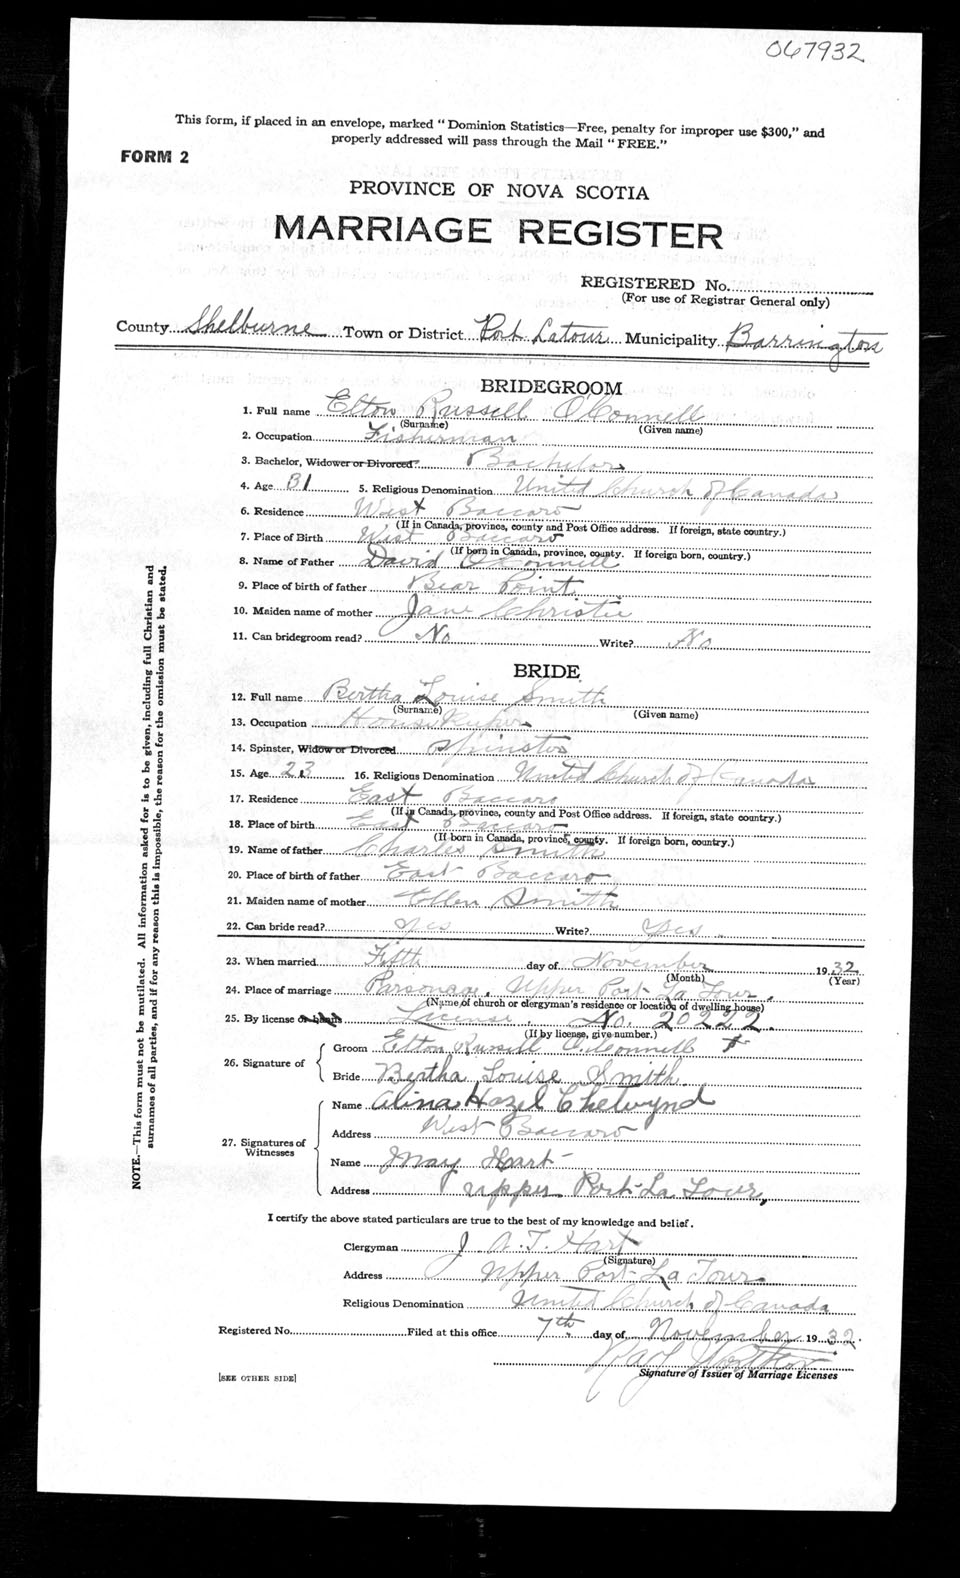 067932
This form, if placed in an envelope, marked "Dominion Statistics—Free, penalty for improper use $300," and
properly addressed will pass through the Mail "FREE."
FORM 2
PROVINCE OF NOVA SCOTIA
MARRIAGE REGISTER
REGISTERED No.
(For use of Registrar General only)
County Shelburne Town or District Port Latour Municipality Barrington
BRIDEGROOM
1. Full name Elton Russell O'Connell
(Surname) (Given name)
2. Occupation Fisherman
3. Bachelor, Widower or Divorced? Bachelor
4. Age 31 5. Religious Denomination United Church of Canada
6. Residence West Baccaro
(If in Canada, province, county and Post Office address. If foreign, state country.)
7. Place of Birth West Baccaro
(If born in Canada, province, county. If foreign born, country.)
8. Name of Father David O'Connell
9. Place of birth of father Bear Point
10. Maiden name of mother Jane Christie
11. Can bridegroom read? No Write? No
BRIDE
12. Full name Bertha Louise Smith
(Surname) (Given name)
13. Occupation Housekeeper
14. Spinster, Widow or Divorced Spinster
15. Age 23 16. Religious Denomination United Church of Canada
17. Residence East Baccaro
(If in Canada, province, county and Post Office address. If foreign, state country.)
18. Place of birth East Baccaro
(If born in Canada, province, county. If foreign born, country.)
19. Name of father Charles Smith
20. Place of birth of father East Baccaro
21. Maiden name of mother Ellen Smith
22. Can bride read? Yes Write? Yes
23. When married Fifth day of November 1932
(Month) (Year)
24. Place of marriage Parsonage, Upper Port La Tour,
(Name of church or clergyman's residence or location of dwelling house)
25. By license or banns License. No. 20222.
(If by license, give number.)
26. Signature of
Groom Elton Russell O'Connell +
Bride Bertha Louise Smith
27. Signatures of Witnesses
Name Alina Hazel Chetwynd
Address West Baccaro
Name May Hart
Address Upper Port La Tour,
I certify the above stated particulars are true to the best of my knowledge and belief.
Clergyman J. A. T. Hart
(Signature)
Address Upper Port La Tour
Religious Denomination United Church of Canada
Registered No. Filed at this office 7th. day of November 1932.
Signature of Issuer of Marriage Licenses
[SEE OTHER SIDE]
NOTE.—This form must not be mutilated. All information asked for is to be given, including full Christian and
surnames of all parties, and if for any reason this is impossible, the reason for the omission must be stated.